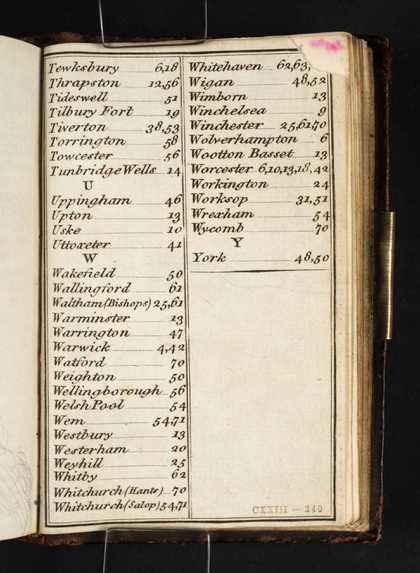 Tewksbury 6,18
Thrapston 12,56
Tideswell 51
Tilbury Fort 19
Tiverton 38,53
Torrington 58
Towcester 56
Tunbridge Wells 14
U
Uppingham 46
Upton 13
Uske 10
Uttoxeter 41
W
Wakefield 50
Wallingford 61
Waltham (Bishops) 25,61
Warminster 13
Warrington 47
Warwick 4,42
Watford 70
Weighton 50
Wellingborough 56
Welsh Pool 54
Wem 54,71
Westbury 13
Westerham 20
Weyhill 25
Whitby 62
Whitchurch (Hants) 70
Whitchurch (Salop) 54,71
Whitehaven 62,63,
Wigan 48,52
Wimborn 13
Winchelsea 9
Winchester 25,61,70
Wolverhampton 6
Wootton Basset 13
Worcester 6,10,13,18,42
Workington 24
Worksop 31,51
Wrexham 54
Wycomb 70
Y
York 48,50
CXXIII — 240